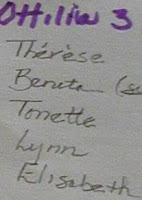 Ottilia 3
Thérèse
Benita (s
Tonette
Lynn
Elisabeth